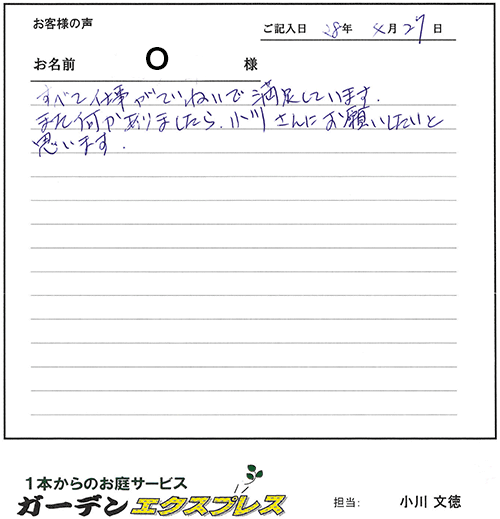 お客様の声
ご記入日 28年 4月 27日
お名前 O 様
すべて仕事がていねいで満足しています.
また何かありましたら、小川さんにお願いしたいと
思います.
1本からのお庭サービス
ガーデンエクスプレス
担当: 小川 文徳